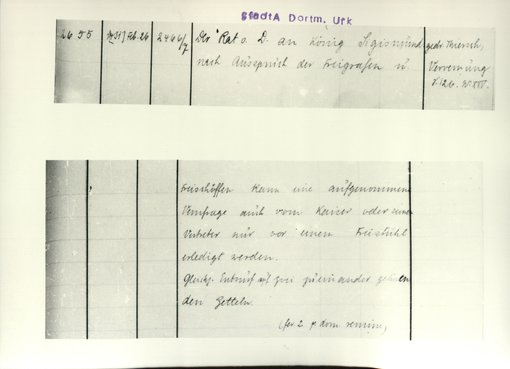 StadtA Dortm. Urk
2655 1431 Feb. 26 2466/7 Der Rat v. D. an König Sigismund: gedr. Thiersch,
nach Ausspruch der Freigrafen u. Vervemung
S. 126. N. XVI.
Freischöffen kann eine aufgenommene
Vemfrage auch vom Kaiser oder seinem
Vertreter nur vor einem Freistuhl
erledigt werden.
Gleichz. Entwurf auf zwei zueinander gehören
den Zetteln.
(fer. 2 p. dom. remin.)